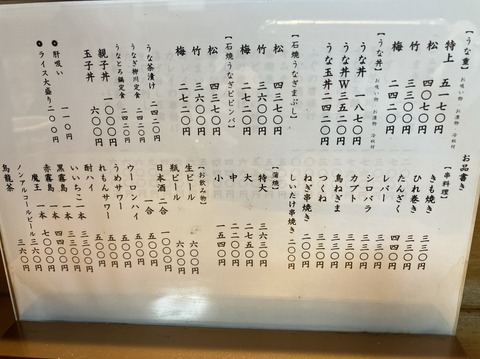 お品書き
【うな重】 お吸い物 お漬物 冷奴付
特上 五一七〇円
松 四〇七〇円
竹 三三〇〇円
梅 二四二〇円
【うな丼】 お吸い物 お漬物 冷奴付
うな丼 一八七〇円
うな丼W 三五二〇円
うな玉丼 二四二〇円
【石焼うなぎまぶし】
松 四三七〇円
竹 三六〇〇円
梅 二七二〇円
【石焼うなぎビビンバ】
松 四三七〇円
竹 三六〇〇円
梅 二七二〇円
うな茶漬け 二四二〇円
うなぎ柳川定食 二四二〇円
うなとろ鍋定食 二四二〇円
親子丼 一〇〇〇円
玉子丼 六〇〇円
◎肝吸い 一一〇円
◎ライス大盛り 二〇〇円
【串料理】
きも焼き 三三〇円
ひれ巻き 三三〇円
たんざく 四四〇円
レバー 二二〇円
シロバラ 三三〇円
カブト 三三〇円
鳥ねぎま 三三〇円
つくね 三三〇円
ねぎ串焼き 二〇〇円
しいたけ串焼き 二〇〇円
【蒲焼】
特大 三六三〇円
大 二七五〇円
中 二二〇〇円
小
【お飲み物】
生ビール 六〇〇円
瓶ビール 六〇〇円
日本酒 一合
二合
ウーロンハイ
うめサワー 五〇〇円
れもんサワー 五〇〇円
酎ハイ
いいちこ 一本
黒霧島 一本
赤霧島 一本
魔王
ノンアルコールビール
烏龍茶 三六〇円